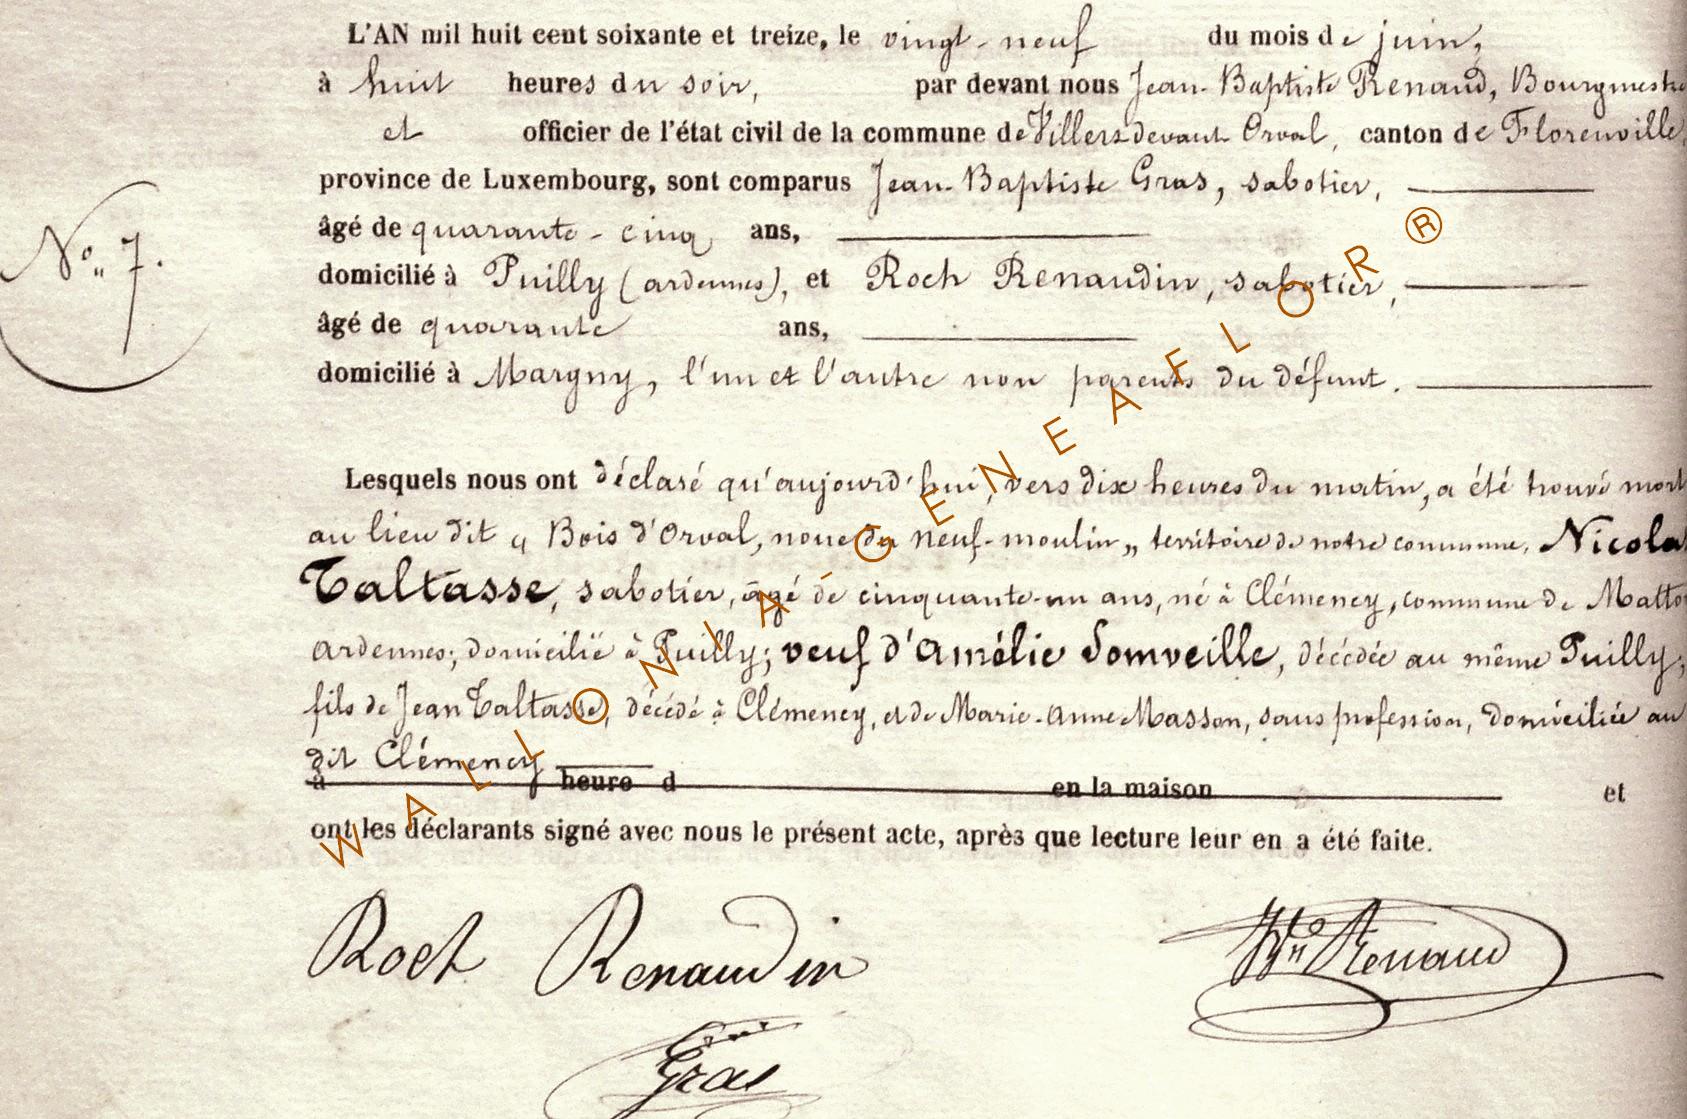 L'AN mil huit cent soixante et treize, le vingt-neuf du mois de juin,
à huit heures du soir, par devant nous Jean-Baptiste Renaud, Bourgmestre
et officier de l'état civil de la commune de Villers devant Orval, canton de Florenville,
province de Luxembourg, sont comparus Jean-Baptiste Gras, sabotier,
âgé de quarante-cinq ans,
No 7.
domicilié à Puilly (ardennes), et Roch Renaudin, sabotier,
âgé de quarante ans,
domicilié à Margny, l'un et l'autre non parents du défunt.
Lesquels nous ont déclaré qu'aujourd'hui, vers dix heures du matin, a été trouvé mort
au lieu dit „ Bois d'Orval, noue du Neuf-moulin „ territoire de notre commune, Nicola
Taltasse, sabotier, âgé de cinquante-un ans, né à Clémency, commune de Matton
ardennes; domicilié à Puilly; veuf d'Amélie Somveille, décédée au même Puilly;
fils de Jean Taltasse, décédé à Clémency, et de Marie-Anne Masson, sans profession, domiciliée au
dit Clémency
à heure d en la maison et
ont les déclarants signé avec nous le présent acte, après que lecture leur en a été faite.
Roch Renaudin
Renaud
Gras
WALLONIA-GENEAFLOR ®